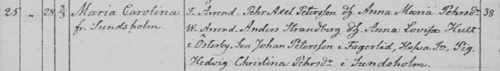 25 " 28 2/3 Maria Carolina F. Arrend. Pehr Axel Petersson dfg Anna Maria Pehrsdr 38
fr. Sundsholm. W. Arrend. Anders Strandberg dfg Anna Lovisa Hult
i Österby, Jon Johan Petersson i Fägerlid, Pig.
Hedvig Christina Pehrsdr i Sundsholm.